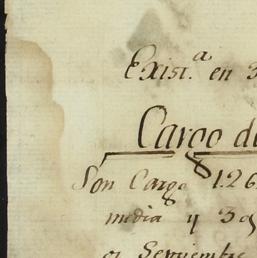 Exist.a en 3
Cargo de
Son Cargo 126
media y 3
Septiembre